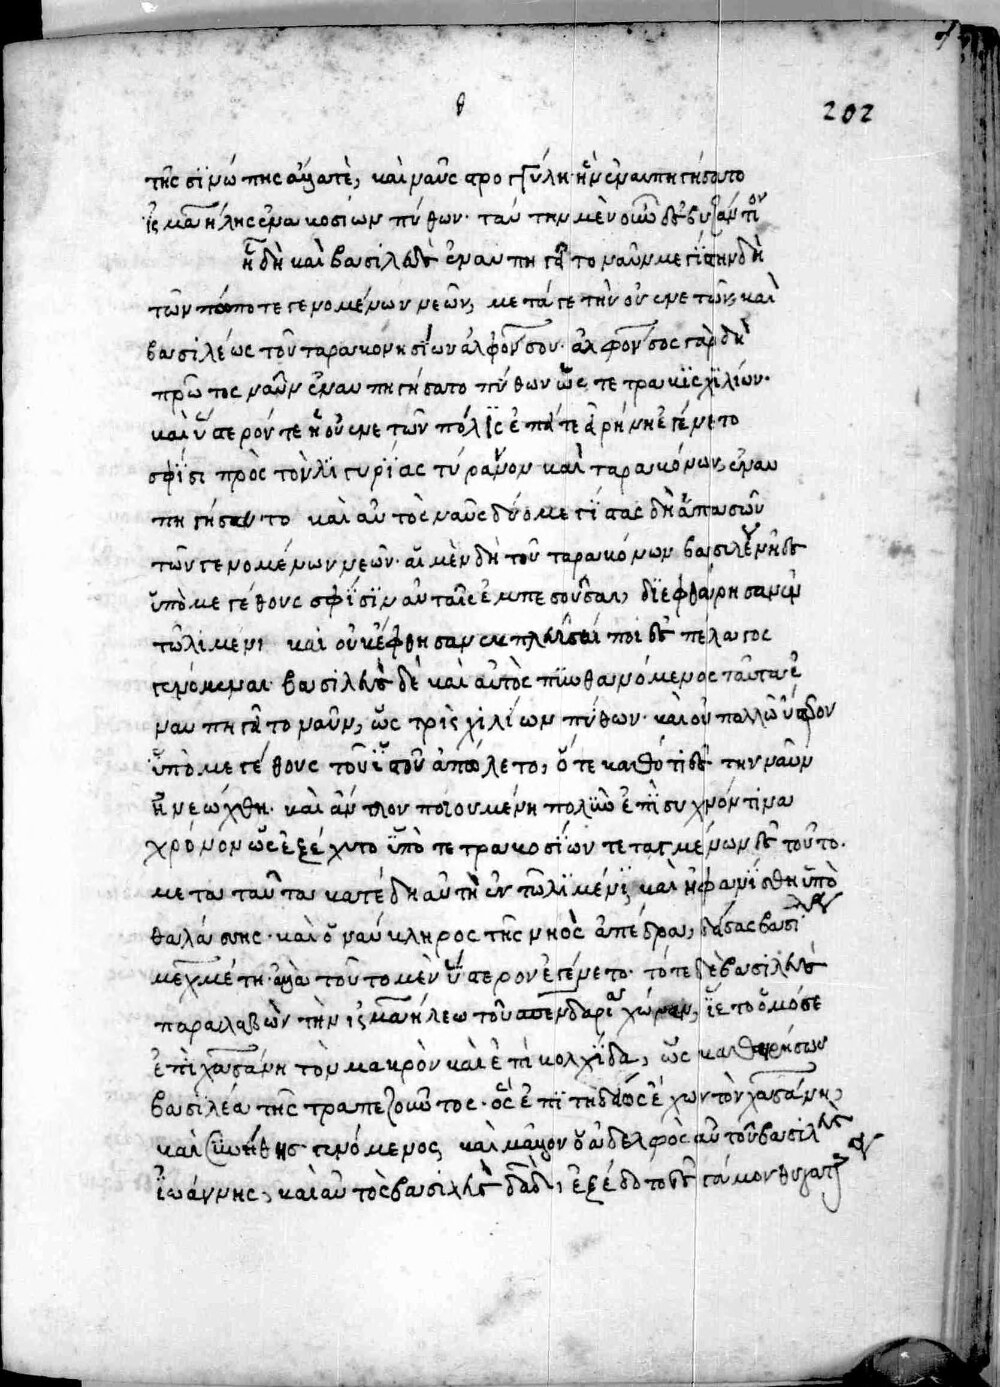 θ
202
τῆς σϊνώπης ἀγατὲ, καὶ ναῦς στρογγύλη ἣν ἐναυπηγήσατο
ἰσμαήλης ἐνακοσίων πίθων· ταύτην μὲν οὖν ἐς βυζάντιον
ἤδη καὶ βασιλεὺς ἐναυπηγεῖτο ναῦν μεγίστην δὴ
τῶν πώποτε γενομένων νεῶν, μετά γε τὴν οὐενετῶν, καὶ
βασιλέως τοῦ ταρακονησίων ἀλφόνσου· ἀλφόνσος γὰρ δὴ
πρῶτος ναῦν ἐναυπηγήσατο πίθων ὡς τετρακϊσχϊλίων·
καὶ ὕστερόν τε ἡ οὐενετῶν πόλϊς ἐπεί τε εἰρήνη ἐγένετο
σφίσι πρὸς τὸν λϊγυρΐας τύραννον καὶ ταρακόνων, ἐναυ
πηγήσαντο καὶ αὐτὸς ναῦς δύο μεγίστας δὴ ἁπασῶν
τῶν γενομένων νεῶν· αἱ μὲν δὴ τοῦ ταρακόνων βασιλέως νῆες
ὑπὸ μεγέθους σφίσϊν αὐταῖς ἐμπεσοῦσαι, δϊεφθάρησαν ἐν
τῷ λιμένι καὶ οὐκ ἔφθησαν ἐκπλεῦσαί ποι ἐς πέλαγος
γενόμεναι· βασιλεὺς δὲ καὶ αὐτὸς πυνθανόμενος ταῦτα ἐ
ναυπηγεῖτο ναῦν, ὡς τρισχιλίων πίθων· καὶ οὐ πολλῷ ὕστερον
ὑπὸ μεγέθους τοῦ ἱστοῦ ἀπώλετο, ὅτε καθότι ἐς τὴν ναῦν
ἠνεῴχθη· καὶ ἄντλον ποιουμένη πολὺν ἐπὶ συχνόν τινα
χρόνον ὡς ἐξέχυτο ὑπὸ τετρακοσίων τεταγμένων ἐς τοῦτο·
μετὰ ταῦτα κατέδη αὐτὴ ἐν τῷ λϊμένϊ καὶ ἠφανίσθη ὑπὸ
θαλάσσης· καὶ ὁ ναύκληρος τῆς νηὸς ἀπέδρα, δείσας βασιλέα
μεχμέτη· ἀλλὰ τοῦτο μὲν ὕστερον ἐγένετο· τότε δὲ βασιλεὺς
παραλαβὼν τὴν ἰσμαήλεω τοῦ σπενδαρὶ χώραν, ἵετο ὁμόσε
ἐπὶ χασάνη τὸν μακρὸν καὶ ἐπὶ κολχίδα, ὡς καθαιρήσων
βασιλέα τῆς τραπεζοῦντος· ὃς ἐπιτηδείως ἔχων τὸν χασάνη,
καὶ ξυνήθης γινόμενος, καὶ μᾶλλον ὁ ἀδελφὸς αὐτοῦ βασιλεὺς
ϊωάννης, καὶ αὐτὸς βασιλεὺς δαδὶ, ἐξέδοτο ἐς γάμον θυγατέρα